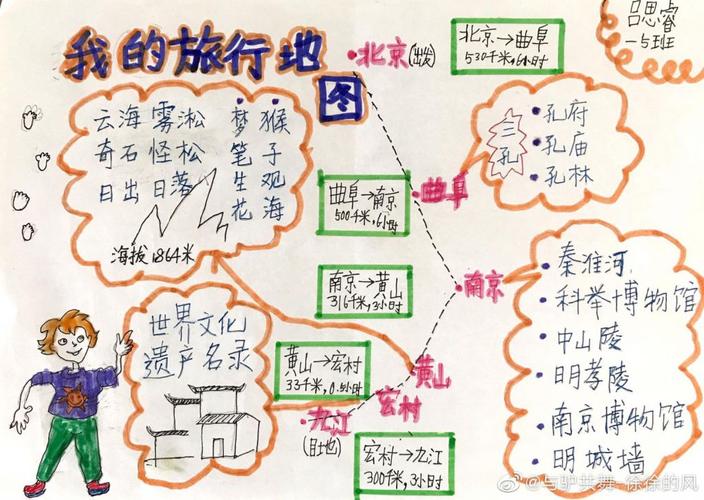 我的旅行地
图
吕思睿
一5班
北京(出发)
北京→曲阜
530千米,6小时
云海 雾淞
奇石 怪松
日出 日落
梦笔生花
猴子观海
海拔1864米
三孔
孔府
孔庙
孔林
曲阜→南京
500千米,6小时
曲阜
南京→黄山
316千米,3小时
南京
秦淮河
科举博物馆
中山陵
明孝陵
南京博物馆
明城墙
世界文化
遗产名录
黄山→宏村
33千米,0.5小时
黄山
宏村
九江
(目地)
宏村→九江
300千米,3小时
@与驴共舞-徐徐的风